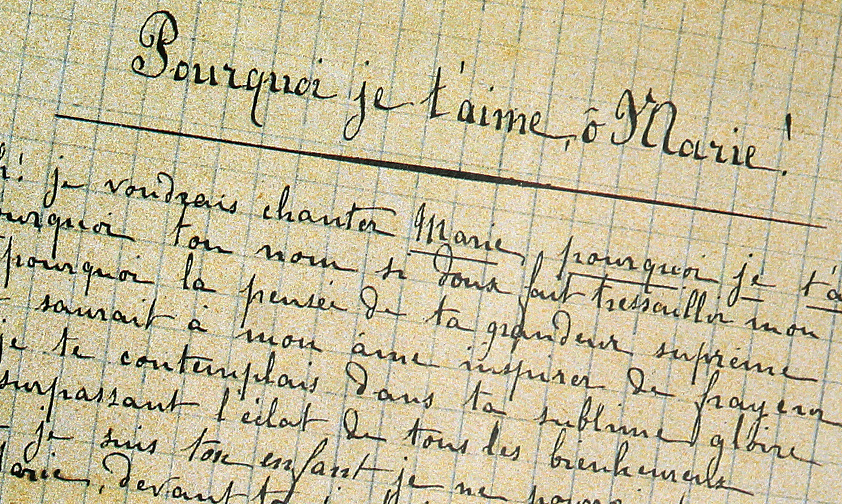 Pourquoi je t'aime, ô Marie!
h! je voudrais chanter Marie, pourquoi je t'a
ourquoi ton nom si doux fait tressaillir mon
pourquoi la pensée de ta grandeur suprême
saurait à mon âme inspirer de frayeur
je te contemplais dans ta sublime gloire
surpassant l'éclat de tous les bienheureux
je suis ton enfant je ne
arie, devant